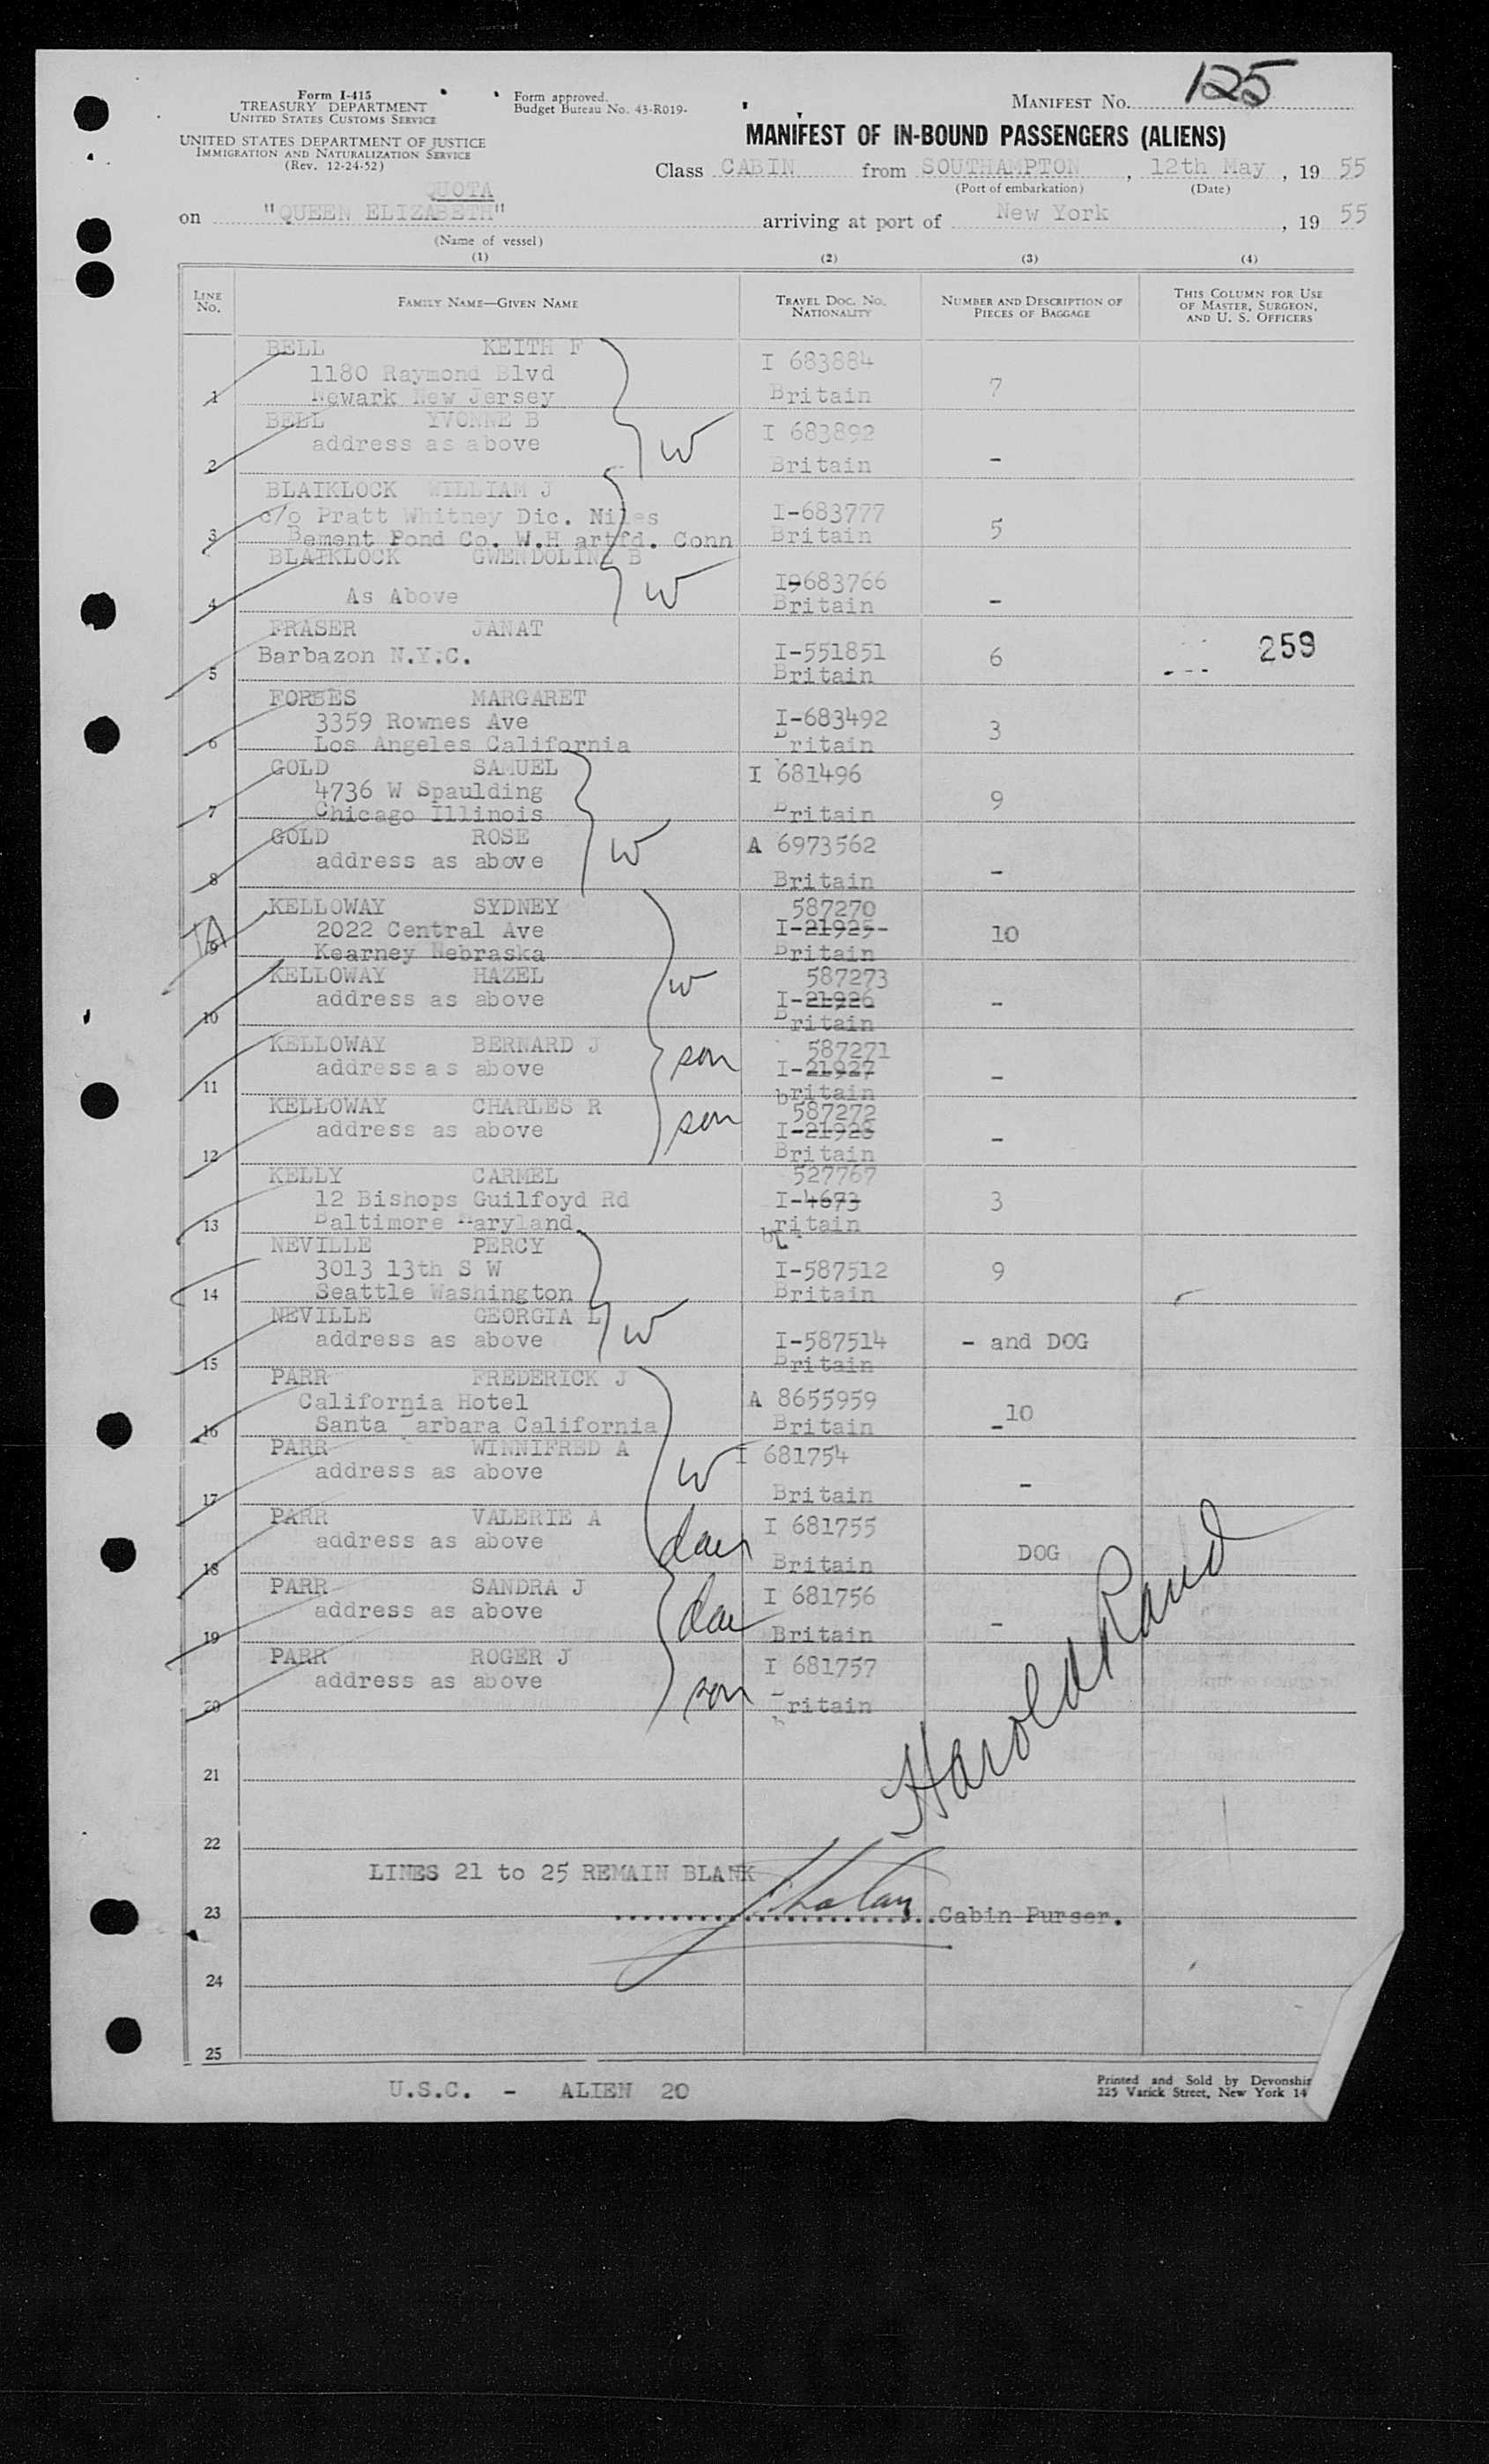 Form I-415
TREASURY DEPARTMENT
UNITED STATES CUSTOMS SERVICE
UNITED STATES DEPARTMENT OF JUSTICE
IMMIGRATION AND NATURALIZATION SERVICE
(Rev. 12-24-52)
Form approved.
Budget Bureau No. 43-R019-
MANIFEST No. 125
MANIFEST OF IN-BOUND PASSENGERS (ALIENS)
Class CABIN from SOUTHAMPTON, 12th May, 19 55
(Port of embarkation) (Date)
QUOTA
on "QUEEN ELIZABETH" arriving at port of New York, 19 55
(Name of vessel)
(1) (2) (3) (4)
LINE No. FAMILY NAME—GIVEN NAME TRAVEL DOC. NO. NATIONALITY NUMBER AND DESCRIPTION OF PIECES OF BAGGAGE THIS COLUMN FOR USE OF MASTER, SURGEON, AND U. S. OFFICERS
BELL KEITH F I 683884
1180 Raymond Blvd
1 Newark New Jersey Britain 7
BELL YVONNE B I 683892
address as above W
2 Britain -
BLAIKLOCK WILLIAM J
c/o Pratt Whitney Dic. Niles I-683777
3 Bement Pond Co. W.H artfd. Conn Britain 5
BLAIKLOCK GWENDOLINE B
As Above W I9683766
4 Britain -
FRASER JANAT
Barbazon N.Y.C. I-551851 6 259
5 Britain
FORBES MARGARET
3359 Rownes Ave I-683492 3
6 Los Angeles California Britain
GOLD SAMUEL I 681496
4736 W Spaulding
7 Chicago Illinois Britain 9
GOLD ROSE A 6973562
address as above W
8 Britain -
KELLOWAY SYDNEY 587270
2022 Central Ave I-21925- 10
9 Kearney Nebraska Britain
KELLOWAY HAZEL 587273
address as above W I-21926 -
10 Britain
KELLOWAY BERNARD J 587271
address as above son I-21927 -
11 britain
KELLOWAY CHARLES R 587272
address as above son I-21928 -
12 Britain
KELLY CARMEL 527767
12 Bishops Guilfoyd Rd I-4673 3
13 Baltimore Maryland britain
NEVILLE PERCY
3013 13th S W I-587512 9
14 Seattle Washington Britain
NEVILLE GEORGIA L
address as above W I-587514 - and DOG
15 Britain
PARR FREDERICK J
California Hotel A 8655959
16 Santa Barbara California Britain -10
PARR WINNIFRED A I 681754
address as above W
17 Britain -
PARR VALERIE A I 681755
address as above dau
18 Britain DOG
PARR SANDRA J I 681756
address as above dau
19 Britain -
PARR ROGER J I 681757
address as above son
20 Britain
21
Harold Rand
22
LINES 21 to 25 REMAIN BLANK
23 Cabin Purser.
24
25
U.S.C. - ALIEN 20
Printed and Sold by Devonshir
225 Varick Street, New York 14